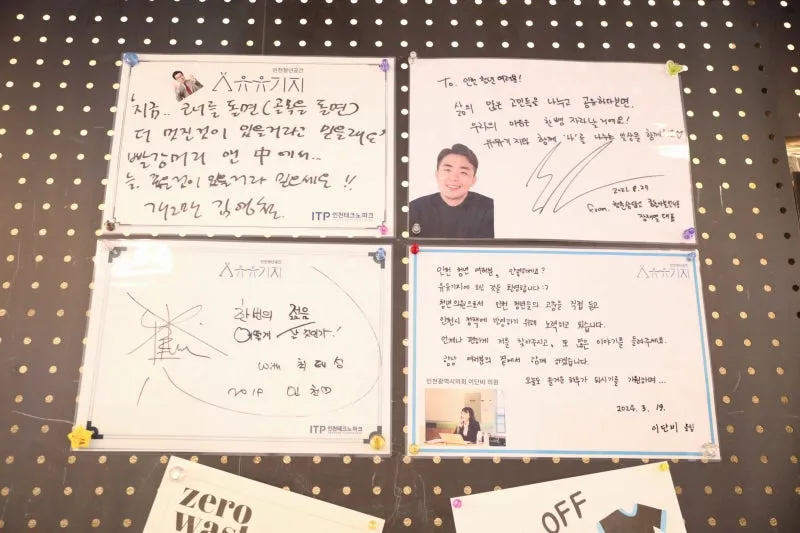 인천청년공간
유유기지
'지금.. 코너를 돌면(골목을 돌면)
더 멋진것이 있을거라고 믿을래요'
빨강머리 앤 中에서..
늘 좋은것이 있을거라 믿으세요!!
개그맨 김영철
ITP 인천테크노파크
To. 인천 청년 여러분!
삶의 많은 고민들을 나누고 공유하다보면,
우리의 마음은 한 뼘 자라날 거예요!
유유기지와 함께 '나'를 나누는 일상을 함께
2021.8.29
From.
대표
인천청년공간
유유기지
한번의 젊음
어떻게 살 것인가!
with 최태성
2019 인천
ITP 인천테크노파크
인천청년공간
유유기지
인천 청년 여러분, 안녕하세요?
유유기지에 오신 것을 환영합니다 :)
청년의원으로서 인천 청년들의 고충을 직접 듣고
인천시 정책에 반영하기 위해 노력하고 있습니다.
언제나 편하게 저를 찾아주시고, 또 많은 이야기를 들려주세요.
항상 여러분의 곁에서 함께 하겠습니다.
오늘도 즐거운 하루가 되시기를 기원하며...
인천광역시의회 이단비 의원
2024. 3. 19.
이단비 올림
zero
wast
OFF